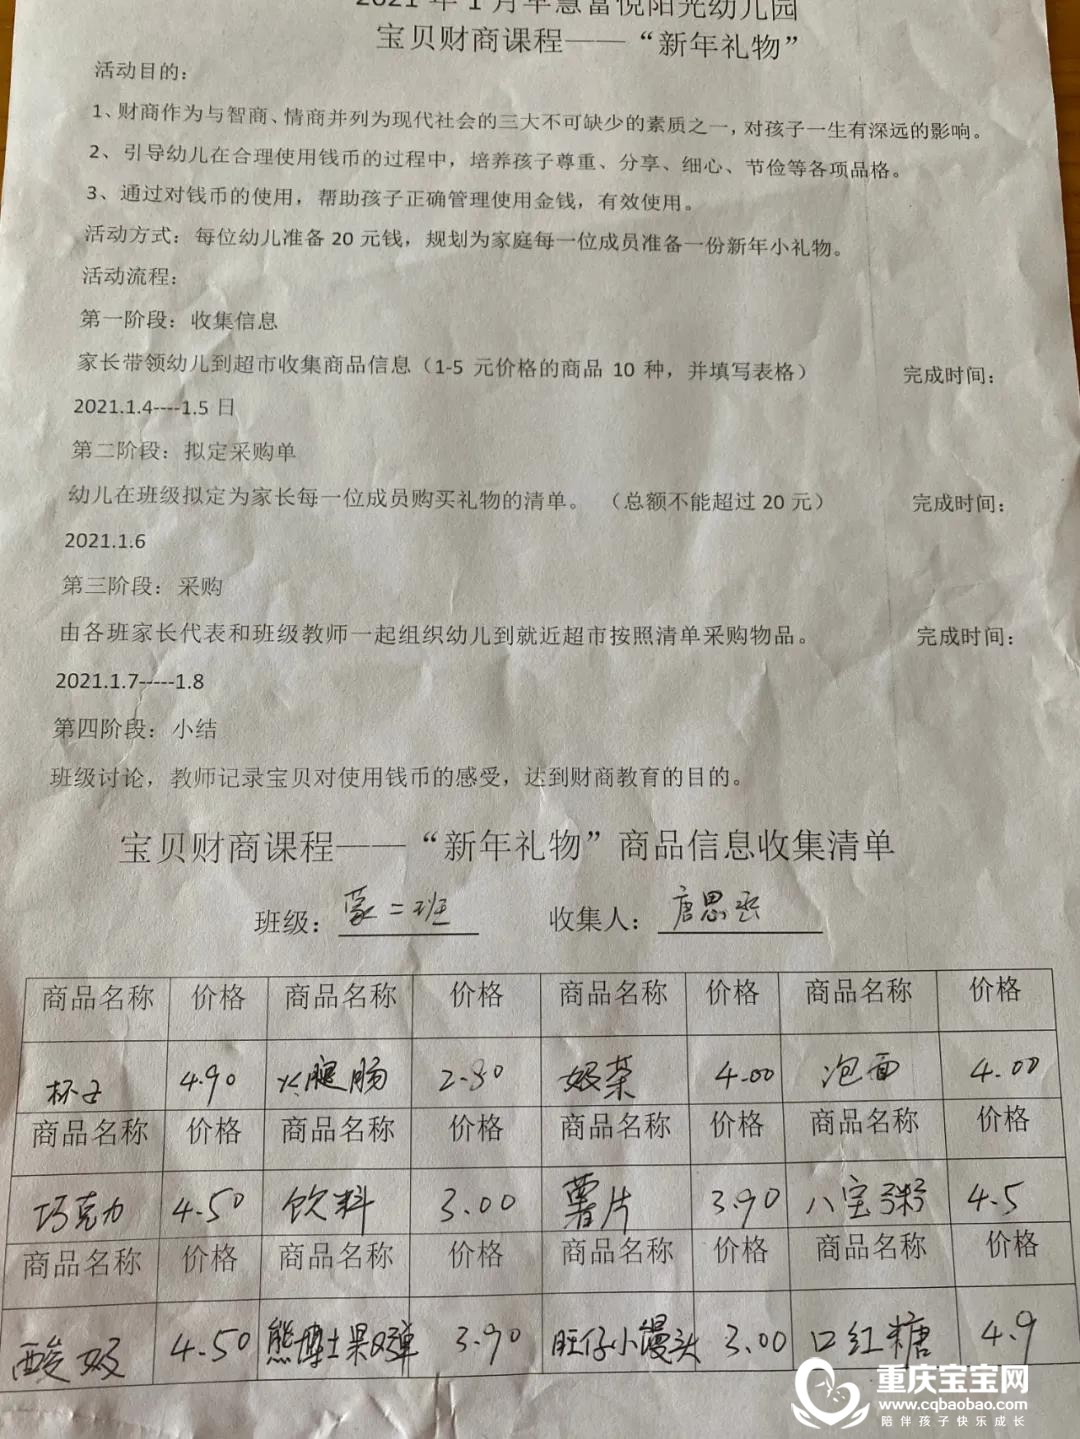 2021年1月早慧富悦阳光幼儿园
宝贝财商课程——“新年礼物”
活动目的：
1、财商作为与智商、情商并列为现代社会的三大不可缺少的素质之一，对孩子一生有深远的影响。
2、引导幼儿在合理使用钱币的过程中，培养孩子尊重、分享、细心、节俭等各项品格。
3、通过对钱币的使用，帮助孩子正确管理使用金钱，有效使用。
活动方式：每位幼儿准备20元钱，规划为家庭每一位成员准备一份新年小礼物。
活动流程：
第一阶段：收集信息
家长带领幼儿到超市收集商品信息（1-5元价格的商品10种，并填写表格） 完成时间：
2021.1.4----1.5日
第二阶段：拟定采购单
幼儿在班级拟定为家长每一位成员购买礼物的清单。（总额不能超过20元） 完成时间：
2021.1.6
第三阶段：采购
由各班家长代表和班级教师一起组织幼儿到就近超市按照清单采购物品。 完成时间：
2021.1.7-----1.8
第四阶段：小结
班级讨论，教师记录宝贝对使用钱币的感受，达到财商教育的目的。
宝贝财商课程——“新年礼物”商品信息收集清单
班级：蒙二班 收集人：唐思丞
商品名称 价格 商品名称 价格 商品名称 价格 商品名称 价格
杯子 4.90 火腿肠 2.80 奶茶 4.00 泡面 4.00
商品名称 价格 商品名称 价格 商品名称 价格 商品名称 价格
巧克力 4.50 饮料 3.00 薯片 3.90 八宝粥 4.5
商品名称 价格 商品名称 价格 商品名称 价格 商品名称 价格
酸奶 4.50 熊博士果汁弹 3.90 旺仔小馒头 3.00 口红糖 4.9
重庆宝宝网
www.cqbaobao.com
陪伴孩子快乐成长